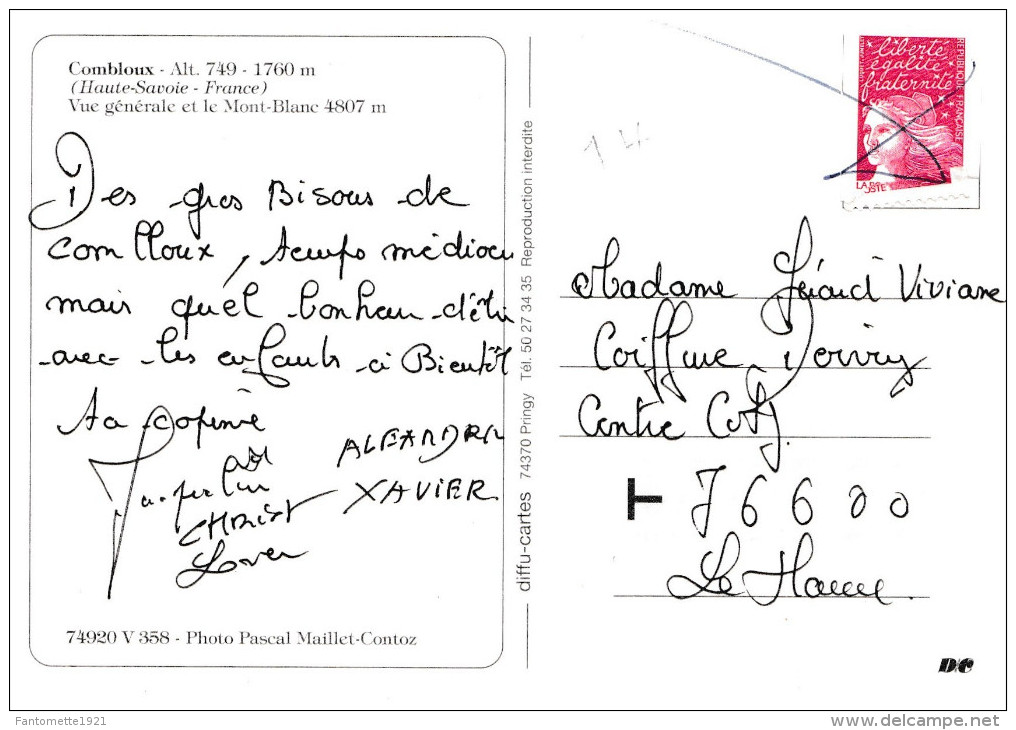 Combloux - Alt. 749 - 1760 m
(Haute-Savoie - France)
Vue générale et le Mont-Blanc 4807 m
Des gros Bisous de
Combloux, temps médiocre
mais quel bonheur d'être
avec les enfants à Bientôt
ta copine
ALEXANDRA
XAVIER
CHRIST
74920 V 358 - Photo Pascal Maillet-Contoz
diffu-cartes 74370 Pringy Tél. 50 27 34 35 Reproduction interdite
14
liberté
égalité
fraternité
RÉPUBLIQUE FRANÇAISE
LA POSTE
Madame Gérard Viviane
Coiffure
Centre
T 76600
Le Havre.
D/C
Fantomette1921
www.delcampe.net